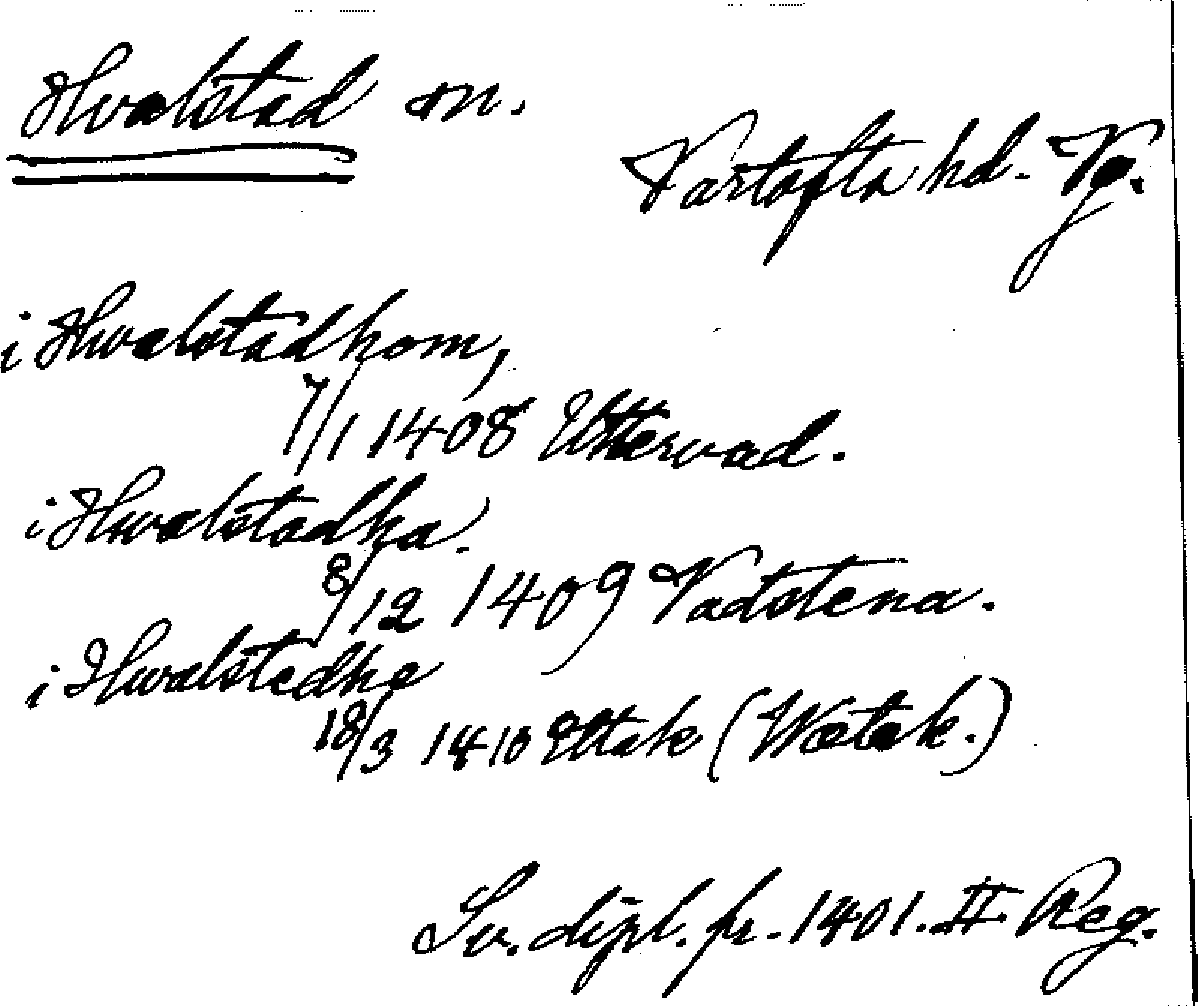 Hvalstad sn.
Vartofta hd. Vg.
i Hwalstadhom,
7/1 1408 Uttervad.
i Hwalstadha.
8/12 1409 Vadstena.
i Hwalstedhe
18/3 1410 Ettak (Wætak.)
Sv. dipl. fr. 1401. II Reg.